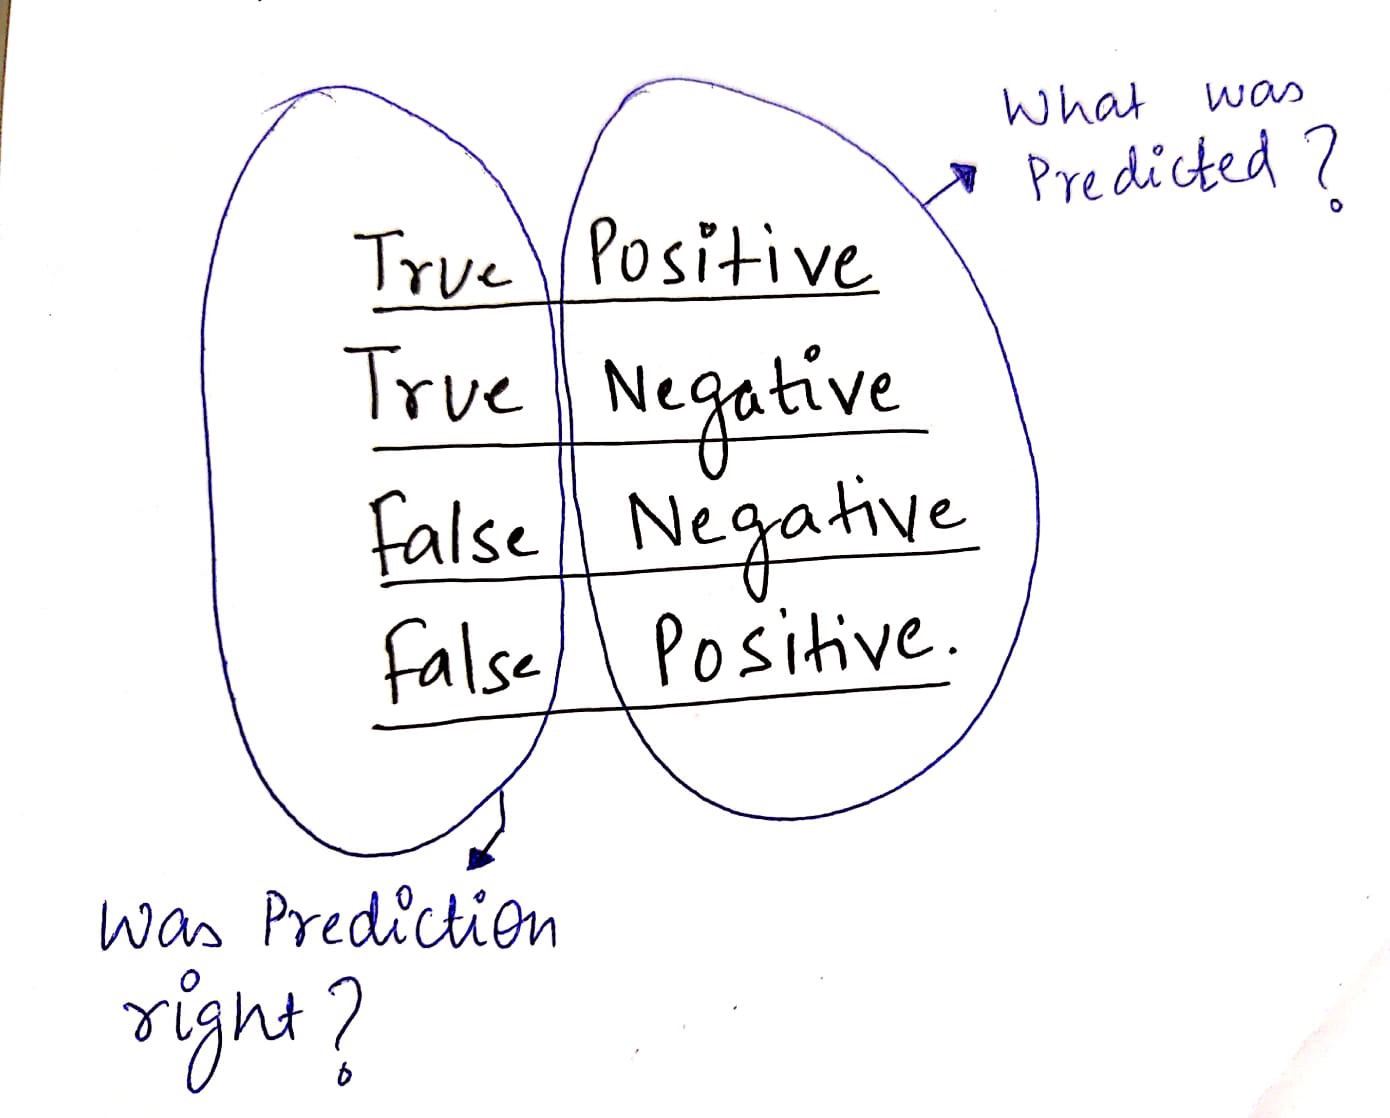 What was
Predicted?
True Positive
True Negative
False Negative
False Positive.
Was Prediction
right?